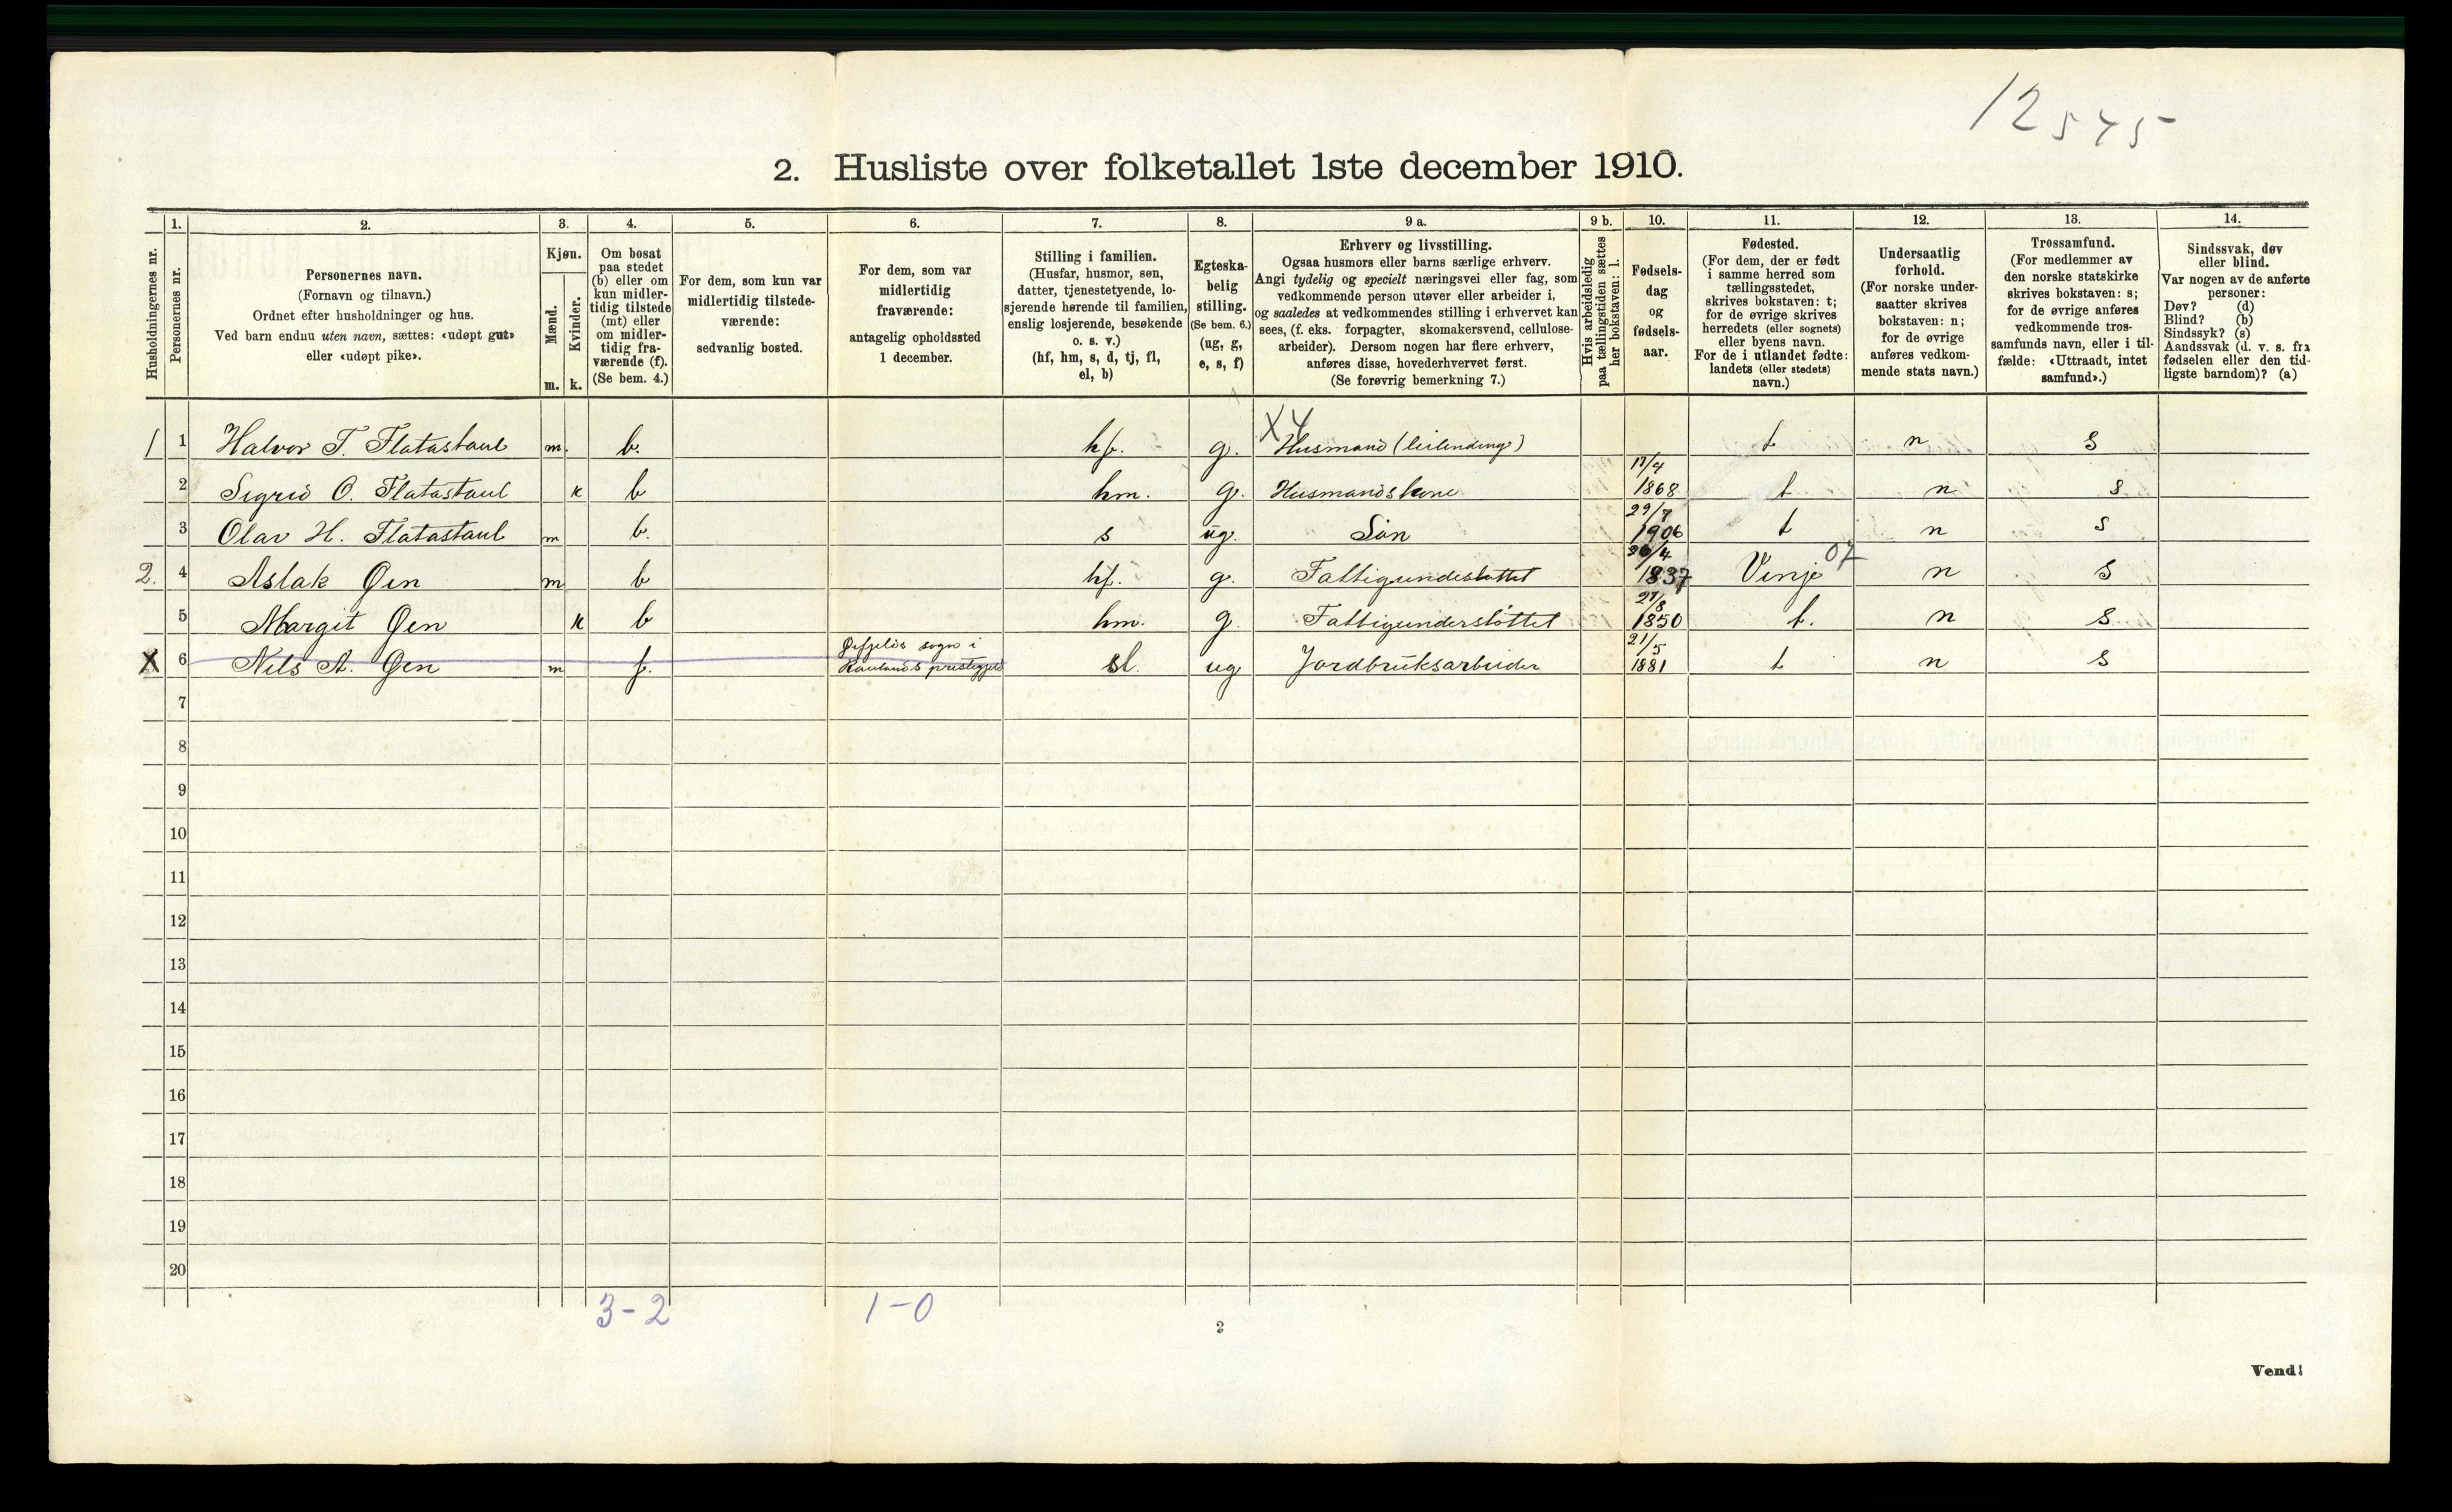 12545
2. Husliste over folketallet 1ste december 1910.
1. 2. 3. 4. 5. 6. 7. 8. 9 a. 9 b. 10. 11. 12. 13. 14.
Husholdningernes nr.
Personernes nr.
Personernes navn.
(Fornavn og tilnavn.)
Ordnet efter husholdninger og hus.
Ved barn endnu uten navn, sættes: «udøpt gut»
eller «udøpt pike».
Kjøn.
Mænd.
Kvinder.
m. k.
Om bosat
paa stedet
(b) eller om
kun midler-
tidig tilstede
(mt) eller
om midler-
tidig fra-
værende (f).
(Se bem. 4.)
For dem, som kun var
midlertidig tilstede-
værende:
sedvanlig bosted.
For dem, som var
midlertidig
fraværende:
antagelig opholdssted
1 december.
Stilling i familien.
(Husfar, husmor, søn,
datter, tjenestetyende, lo-
sjerende hørende til familien,
enslig losjerende, besøkende
o. s. v.)
(hf, hm, s, d, tj, fl,
el, b)
Egteska-
belig
stilling.
(Se bem. 6.)
(ug, g,
e, s, f)
Erhverv og livsstilling.
Ogsaa husmors eller barns særlige erhverv.
Angi tydelig og specielt næringsvei eller fag, som
vedkommende person utøver eller arbeider i,
og saaledes at vedkommendes stilling i erhvervet kan
sees, (f. eks. forpagter, skomakersvend, cellulose-
arbeider). Dersom nogen har flere erhverv,
anføres disse, hovederhvervet først.
(Se forøvrig bemerkning 7.)
Hvis arbeidsledig
paa tællingstiden sættes
her bokstaven: l.
Fødsels-
dag
og
fødsels-
aar.
Fødested.
(For dem, der er født
i samme herred som
tællingsstedet,
skrives bokstaven: t;
for de øvrige skrives
herredets (eller sognets)
eller byens navn.
For de i utlandet fødte:
landets (eller stedets)
navn.)
Undersaatlig
forhold.
(For norske under-
saatter skrives
bokstaven: n;
for de øvrige
anføres vedkom-
mende stats navn.)
Trossamfund.
(For medlemmer av
den norske statskirke
skrives bokstaven: s;
for de øvrige anføres
vedkommende tros-
samfunds navn, eller i til-
fælde: «Uttraadt, intet
samfund».)
Sindssvak, døv
eller blind.
Var nogen av de anførte
personer:
Døv? (d)
Blind? (b)
Sindssyk? (s)
Aandssvak (d. v. s. fra
fødselen eller den tid-
ligste barndom)? (a)
X4
1 1 Halvor T. Flatastaul m. b. hf. g. Husmand (leilending) t n s
2 Sigrid O. Flatastaul k b hm. g. Husmandskone 17/4 1868 t n s
3 Olav H. Flatastaul m b. s ug. Søn 29/7 1906 t n s
2. 4 Aslak Øen m b hf. g. Fattigunderstøttet 26/4 1837 Vinje 07 n s
5 Margit Øen k b hm. g. Fattigunderstöttet 27/8 1850 t. n s
X 6 Nils A. Øen m f. Øifjelds sogn i
Raulands prestegjeld sl. ug Jordbruksarbeider 21/5 1881 t n s
7
8
9
10
11
12
13
14
15
16
17
18
19
20
3-2 1-0
2
Vend!